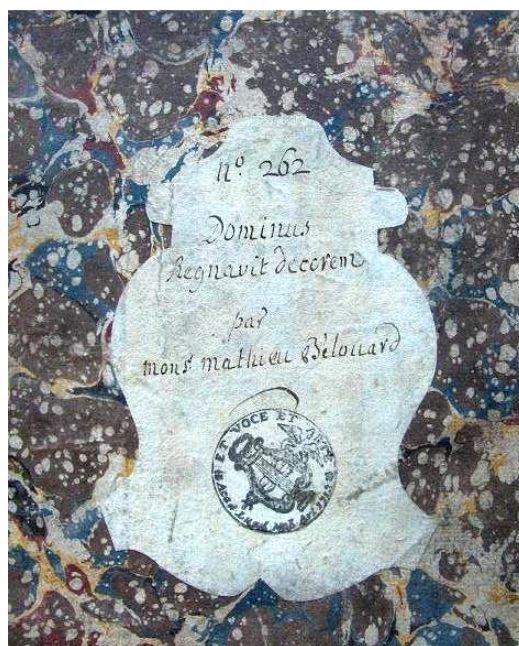 nº. 262
Dominus
Regnavit decorem
par
monsr mathieu Bélouard
ET VOCE ET